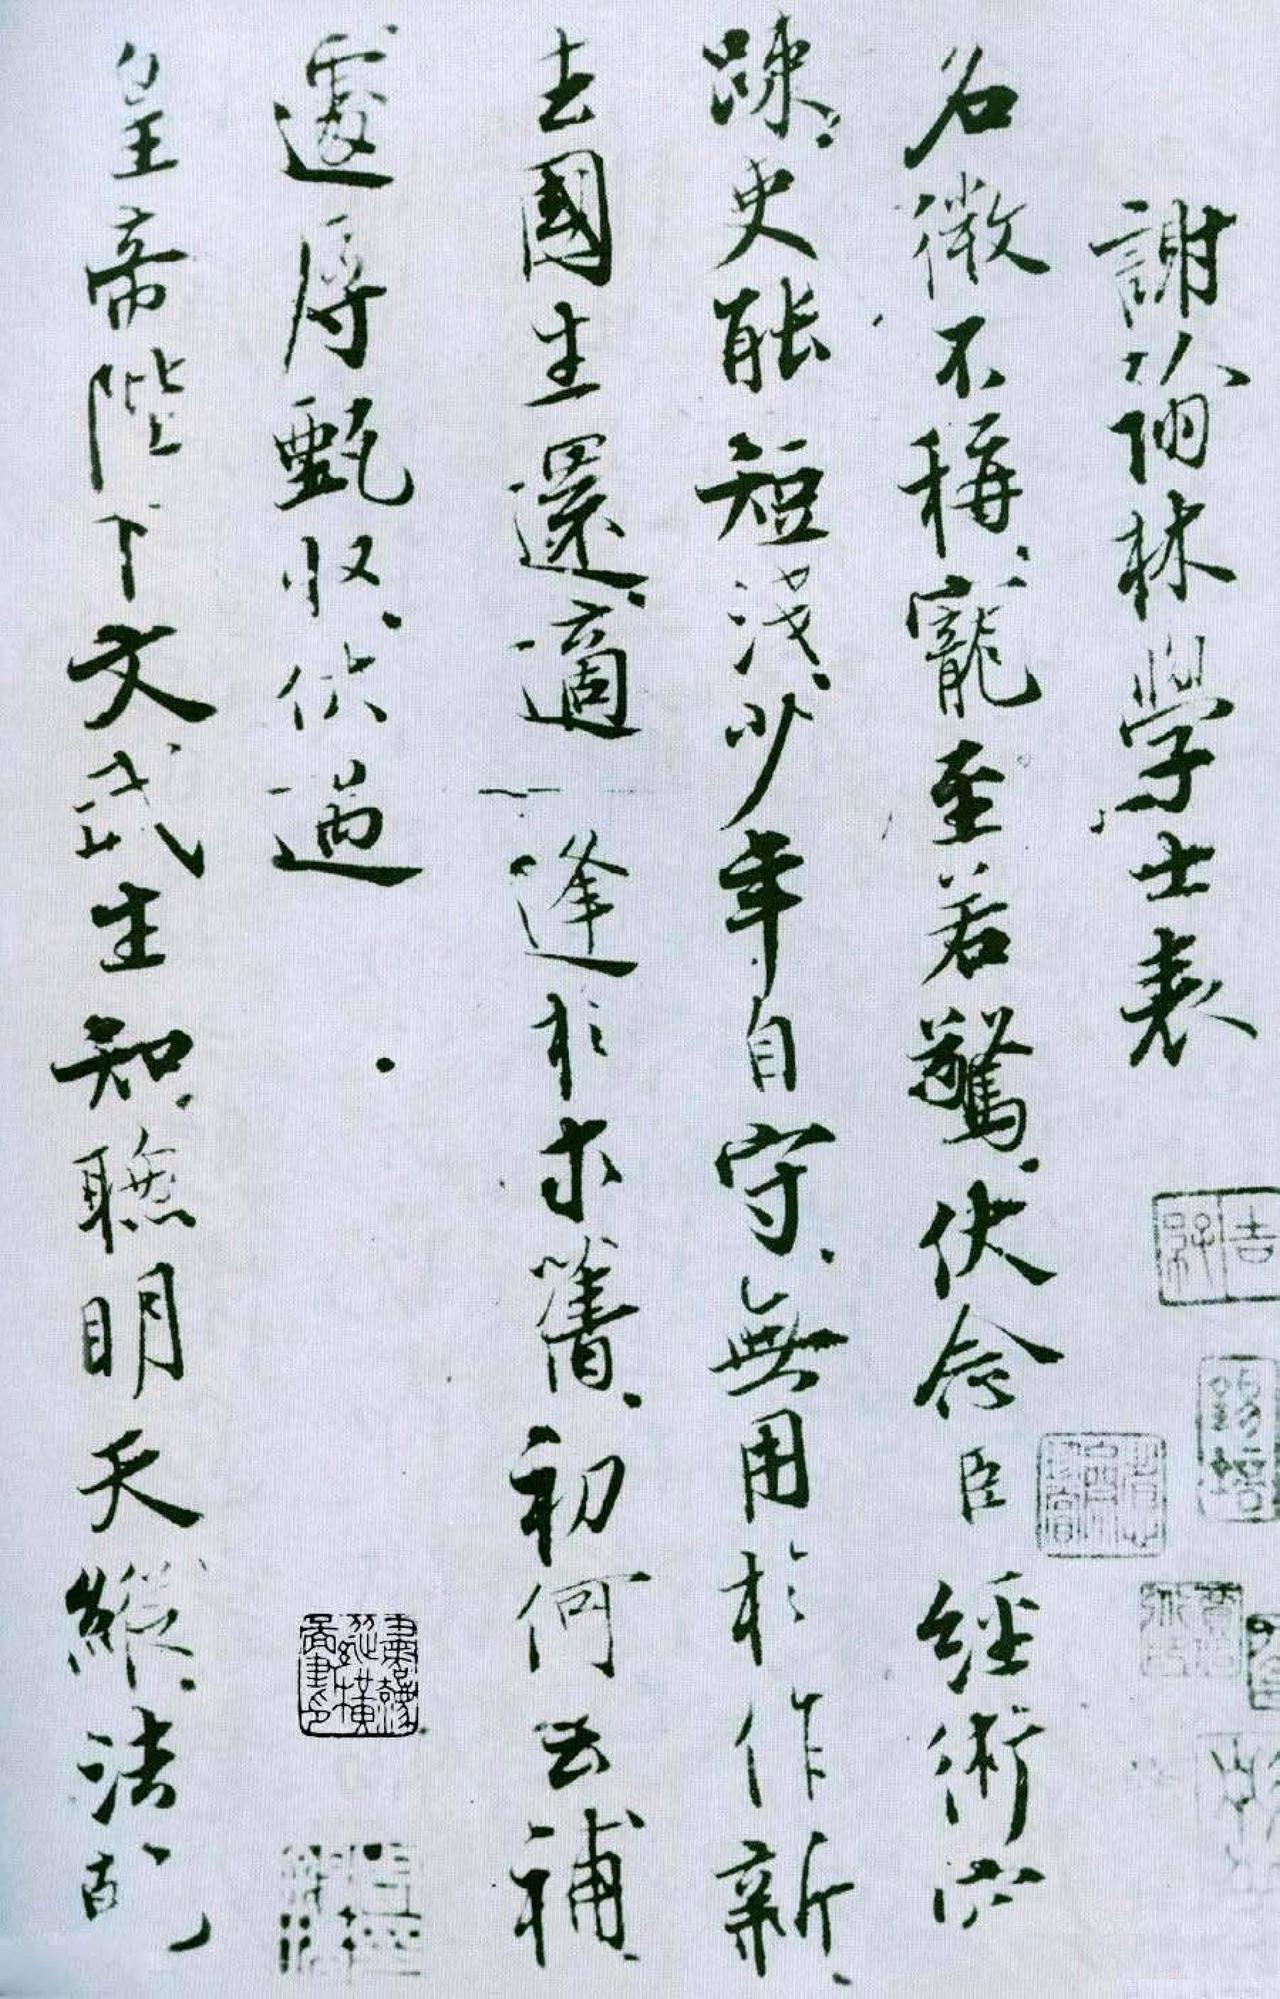 謝翰林學士表
名微不稱寵至若驚伏念臣經術空
踈吏能短淺少年自守無用於作新
去國生還適逢於求舊初何云補
遽辱甄收伏遇
皇帝陛下文武生知聰明天縱法乾